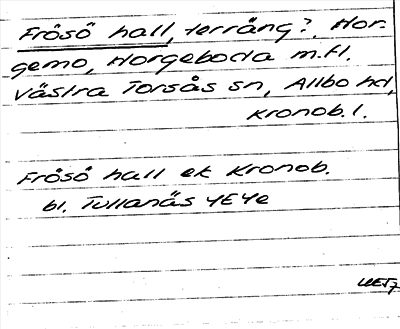 Frösö hall, terräng?, Hor-
gemo, Horgeboda m.fl.
Västra Torsås sn, Allbo hd,
Kronob. l.
Frösö hall ek Kronob.
bl. Tullanäs 4E4e